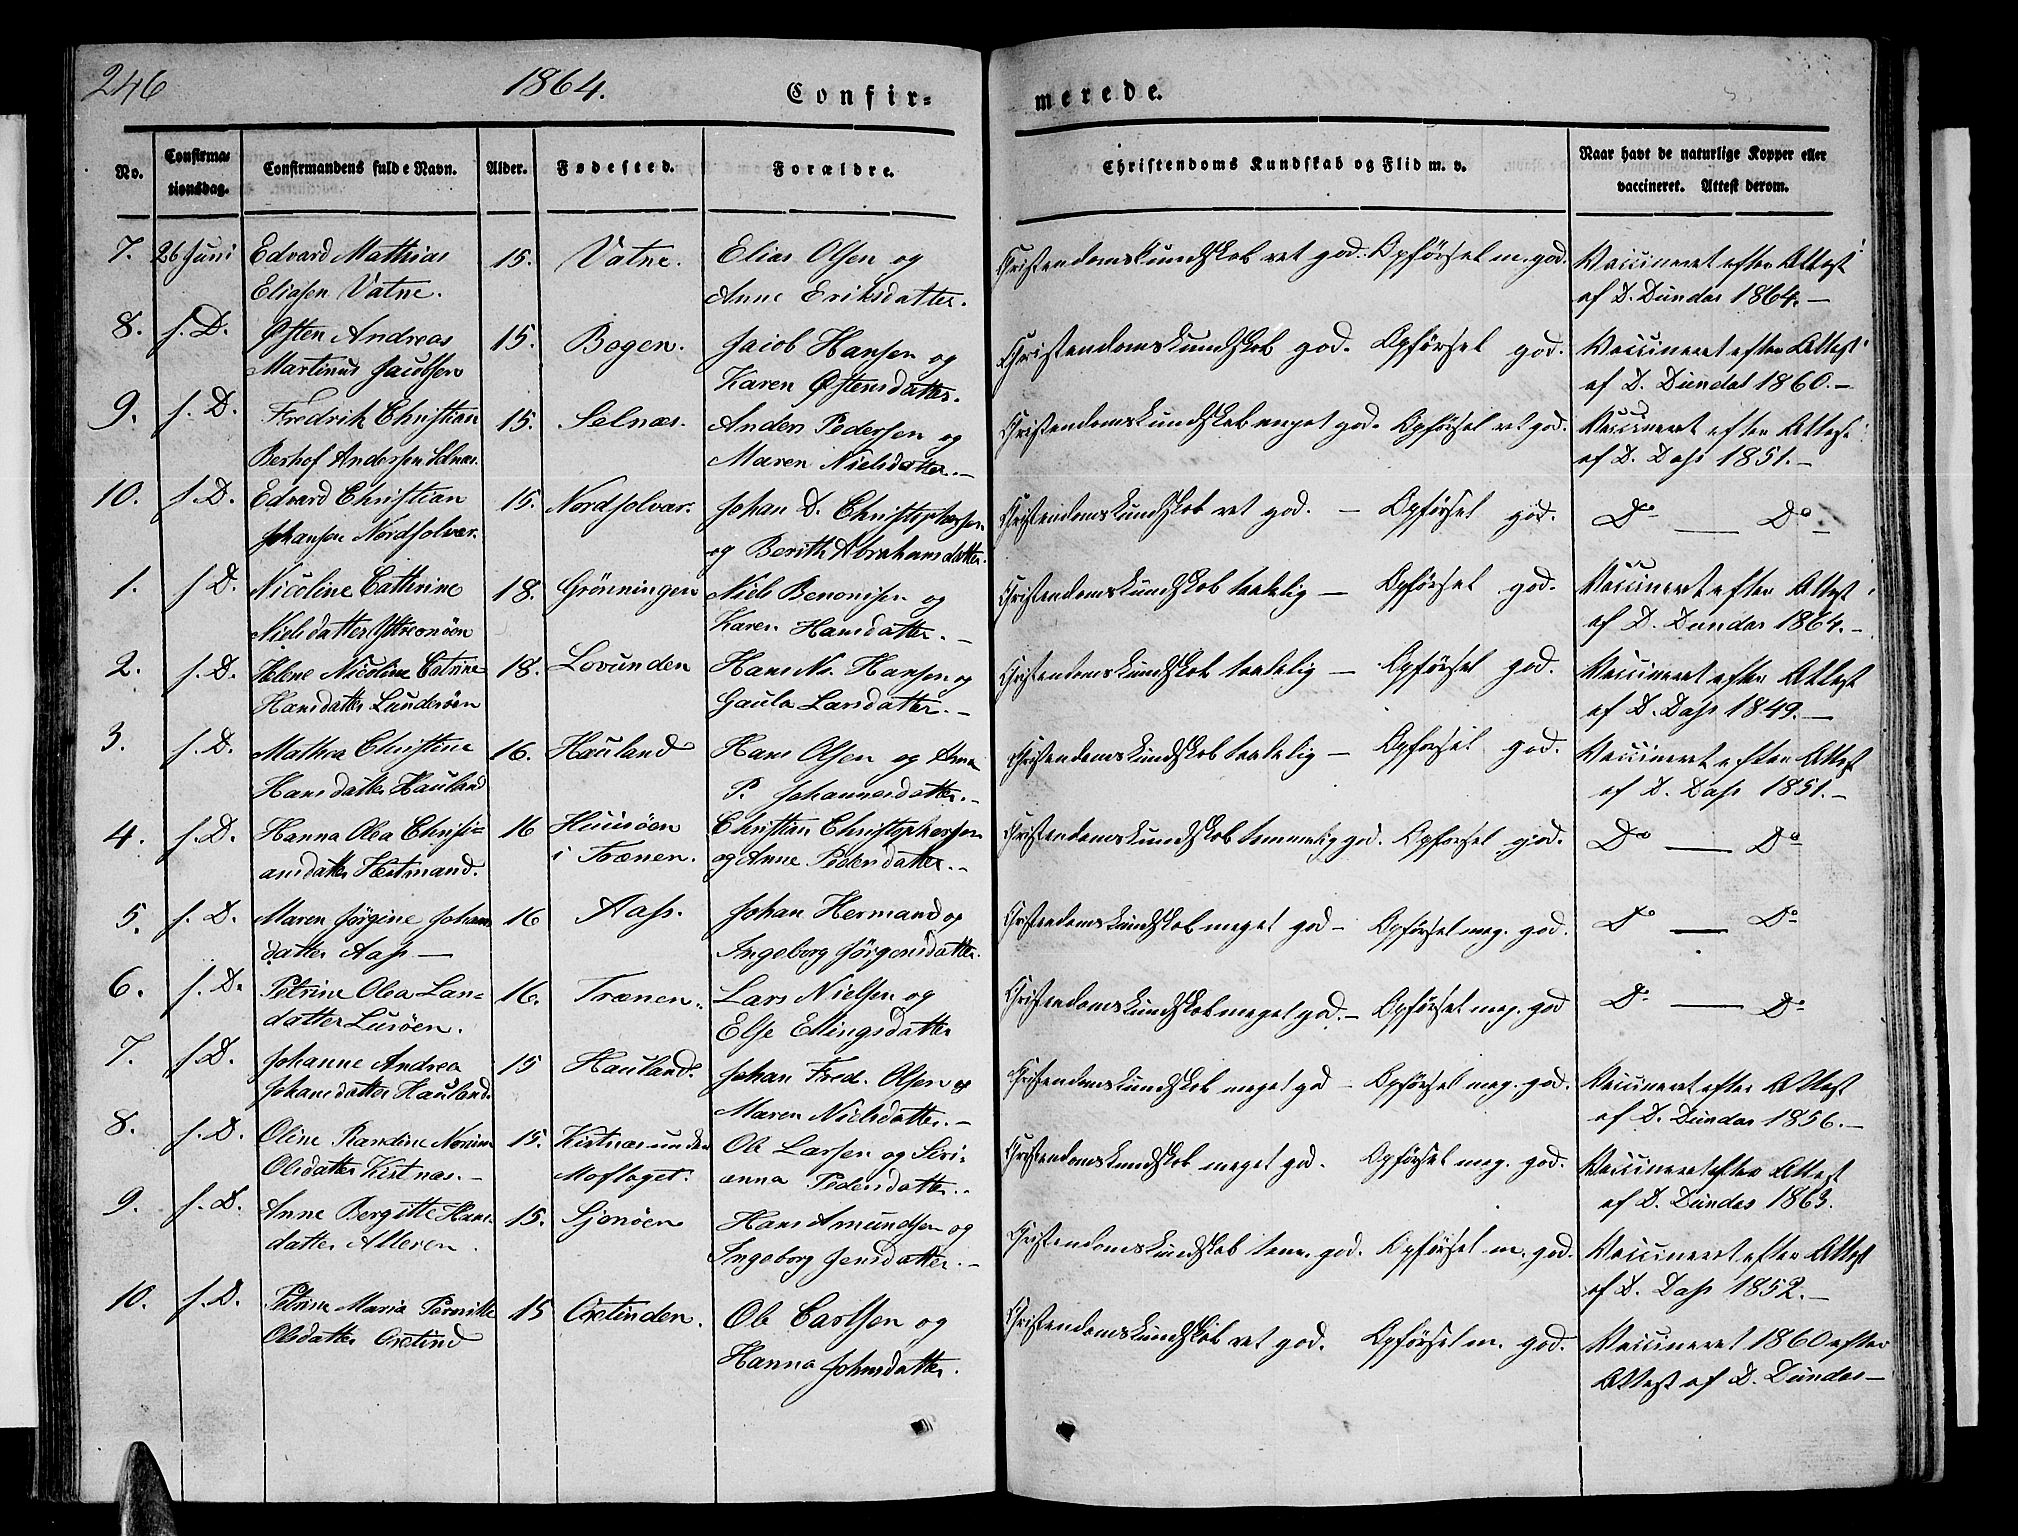 246
1864.
Confir-
merede.
No.
Confirma-
tionsdag.
Confirmandens fulde Navn.
Alder.
Fødested.
Forældre.
Christendoms Kundskab og Flid m. v.
Naar havt de naturlige Kopper eller
vaccineret. Attest derom.
7. 26 Juni Edvard Mathias 15. Vatne. Elias Olsen og Christendomskundskab ret god. Opførsel m. god. Vaccineret efter Attest
Eliasen Vatne. Anne Eriksdatter. af D. Dundas 1864.-
8. s. D. Østen Andreas 15. Bogen. Jacob Hansen og Christendomskundskab god. Opførsel god. Vaccineret efter Attest
Martinus Jacobsen Karen Østensdatter. af D. Dundas 1860.-
9. s. D. Fredrik Christian 15. Selnæs. Anders Pedersen og Christendomskundskab meget god. Opførsel ret god. Vaccineret efter Attest
Berhof Andersen Selnæs. Maren Nielsdatter.- af D. Dass 1851.-
10. s. D. Edvard Christian 15. Nordsolvær. Johan D. Christophersen Christendomskundskab ret god. - Opførsel god. Do — Do
Johansen Nordsolvær. og Berith Abrahamsdatter.
1. s. D. Nicoline Cathrine 18. Grønningen Niels Benonisen og Christendomskundskab taalelig - Opførsel god. Vaccineret efter Attest
Nielsdatter Karen Hansdatter.- af D. Dundas 1864.-
2. s. D. Helene Nicoline Catrine 18. Lovunden Hans N. Hansen og Christendomskundskab taalelig - Opførsel god. Vaccineret efter Attest
Hansdatter Lundsøen Gaula Larsdatter.- af D. Dass 1849.-
3. s. D. Mathea Christine 16. Hauland Hans Olsen og Anna Christendomskundskab taalelig - Opførsel god. Vaccineret efter Attest
Hansdatter Hauland P. Johannesdatter.- af D. Dass 1851.-
4. s. D. Hanna Olea Christi- 16 Huusøen Christian Christophersen Christendomskundskab temmelig god. Opførsel god. Do — Do
ansdatter Hestmand. i Trænen. og Anne Pedersdatter.-
5. s. D. Maren Jørgine Johans 16 Aass. Johan Hermand og Christendomskundskab meget god - Opførsel meg. god. Do — Do
datter Aass — Ingeborg Jørgensdatter.
6. s. D. Petrine Olea Lars- 16. Trænen. Lars Nielsen og Christendomskundskab meget god.- Opførsel meg. god Do — Do
datter Lurøen. Else Ellingsdatter
7. s. D. Johanne Andrea 15 Hauland. Johan Fred. Olsen og Christendomskundskab meget god - Opførsel meg. god. Vaccineret efter Attest
Johansdatter Hauland. Maren Nielsdatter.- af D. Dundas 1856.-
8. s. D. Oline Randine 15. Kistnæs under Ole Larsen og Siri- Christendomskundskab meget god. Opførsel meg. god. Vaccineret efter Attest
Olsdatter Kistnæs.- Moflaget. anna Pedersdatter.- af D. Dundas 1863.
9. s. D. Anne Bergitte Hans- 15. Sjonøen Hans Amundsen og Christendomskundskab tem. god. Opførsel m. god. Vaccineret efter Attest
datter Alteren. Ingeborg Jensdatter.- af D. Dass 1852.-
10. s. D. Petrine Maria Pernitte 15 Oxtinden. Ole Carlsen og Christendomskundskab ret god. Opførsel m. god. Vaccineret 1860 efter
Olsdatter Oxtind Hanna Johnsdatter. Attest af D. Dundas-